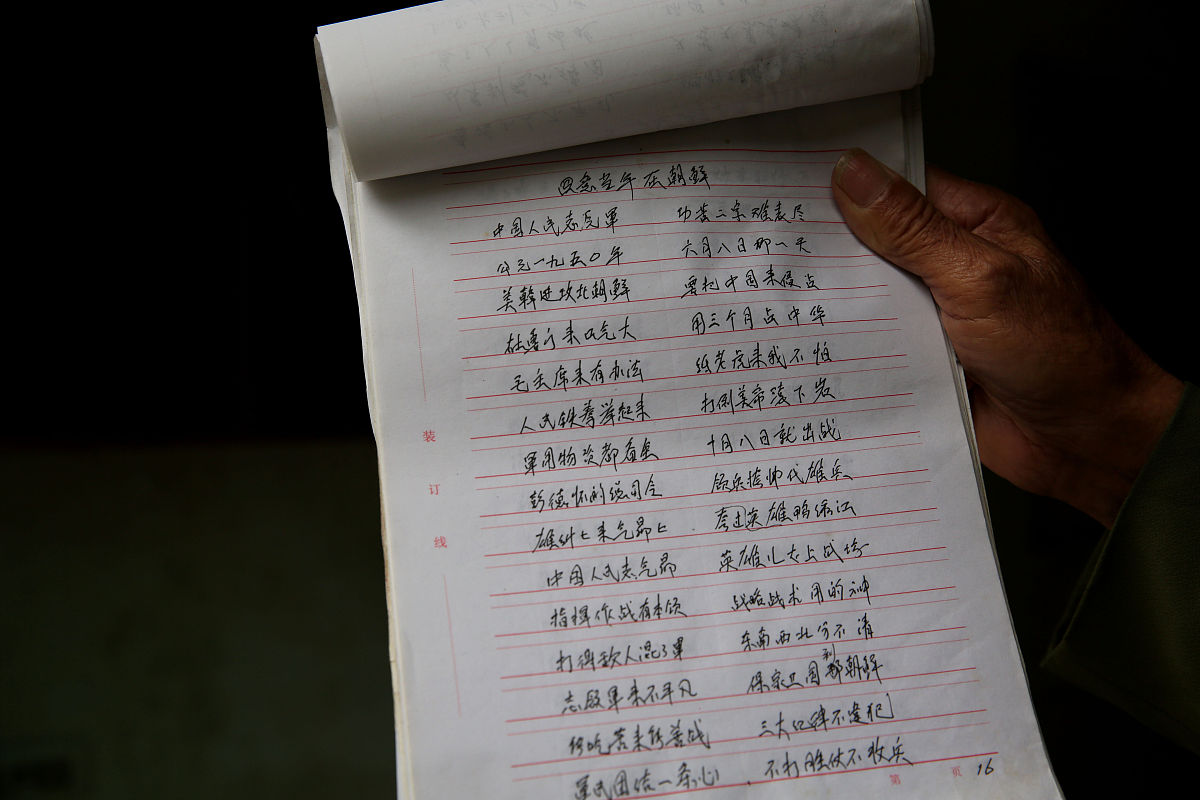 回念当年在朝鲜
中国人民志愿軍 功苦二字难表尽
公元一九五〇年 六月八日那一天
美韓进攻北朝鲜 要把中国来侵占
杜鲁门来口气大 用三个月占中华
毛主席来有办法 纸老虎来我不怕
人民铁拳举起来 打倒美帝滚下岩
軍用物资都 十月八日就出战
彭德怀的总司令 领兵挂帅代雄兵
雄纠七来气昂七 夸过英雄鸭绿江
中国人民志气昂 英雄儿女上战场
指挥作战有本领 战略战术用的神
打得敌人混了軍 东南西北分不清
志愿軍来不平凡 保家卫国到朝鲜
能吃苦来能善战 三大口律不违犯
軍民团结一条心 不打胜仗不收兵
装
订
线
第 页 16